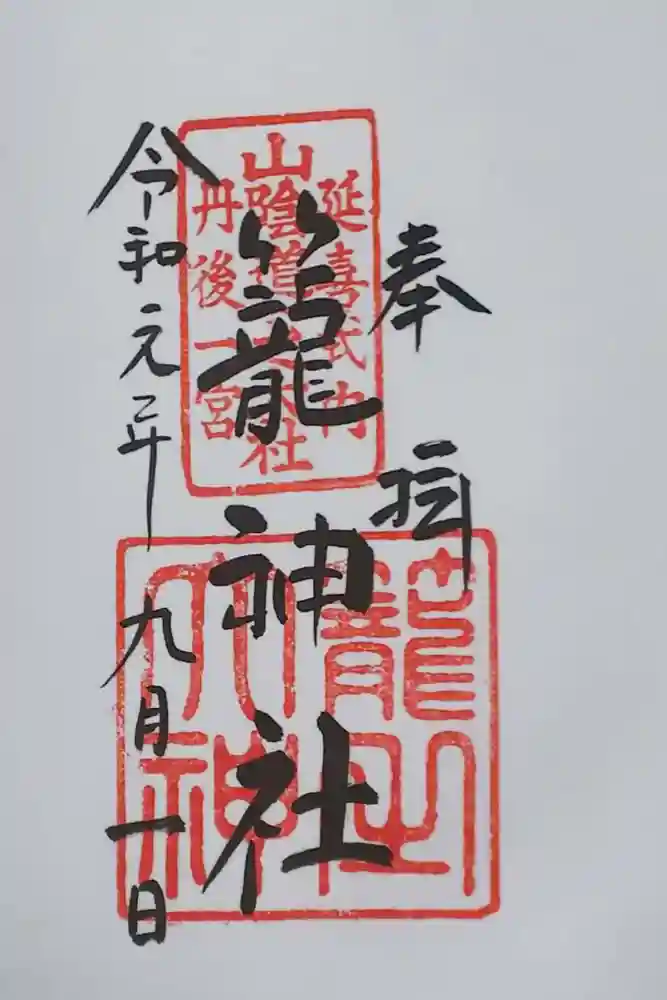 奉拝
籠神社
令和元年九月一日
延喜式内
山陰道一之大社
丹後一宮
籠之
大神